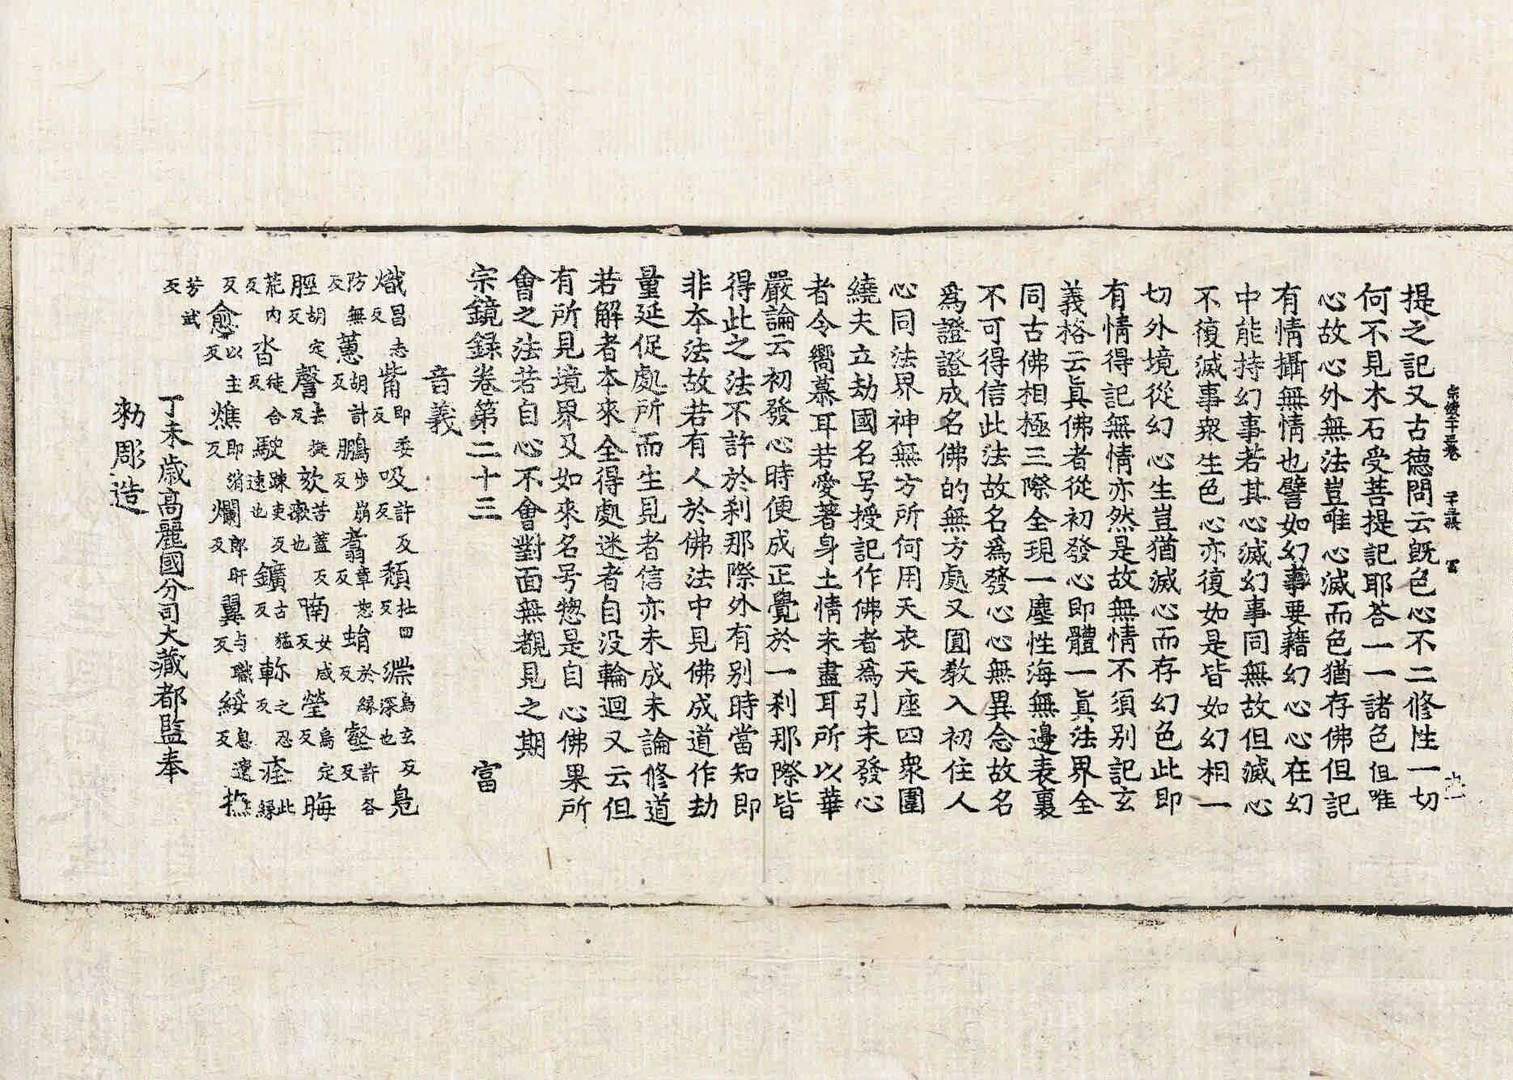 提之記又古德問云旣色心不二修性一切
何不見木石受菩提記耶荅一一諸色但唯
心故心外無法豈唯心滅而色猶存佛但記
有情攝無情也譬如幻事要藉幻心心在幻
中能持幻事若其心滅幻事同無故但滅心
不復滅事衆生色心亦復如是皆如幻相一
切外境從幻心生豈猶滅心而存幻色此即
有情得記無情亦然是故無情不須別記玄
義格云眞佛者從初發心即體一眞法界全
同古佛相極三際全現一塵性海無邊表裏
不可得信此法故名爲發心心無異念故名
爲證證成名佛的無方處又圓教入初住人
心同法界神無方所何用天衣天座四衆圍
繞夫立劫國名号授記作佛者爲引未發心
者令嚮慕耳若愛著身土情未盡耳所以華
嚴論云初發心時便成正覺於一刹那際皆
得此之法不許於刹那際外有別時當知即
非本法故若有人於佛法中見佛成道作劫
量延促處所而生見者信亦未成未論修道
若解者本來全得處迷者自没輪迴又云但
有所見境界及如來名号惣是自心佛果所
會之法若自心不會對面無覩見之期
宗鏡錄卷第二十三 富
音義
熾昌志反 觜即委反 吸許及反 頹杜回反 淵烏玄反深也 鳧
防無反 蕙胡計反 鵬步崩反 翥章恕反 蜎於緣反 壑許各反
脛胡定反 謦去挺反 欬苦蓋反瘶也 喃女咸反 瑩烏定反 晦
荒内反 沓徒合反 駛踈吏反速也 鑛古猛反 軫之忍反 痊此緣反
愈以主反 燋即消反 爛郎旰反 翼与職反 綏息遺反 撫
芳武反
丁未歲高麗國分司大藏都監奉
勑彫造